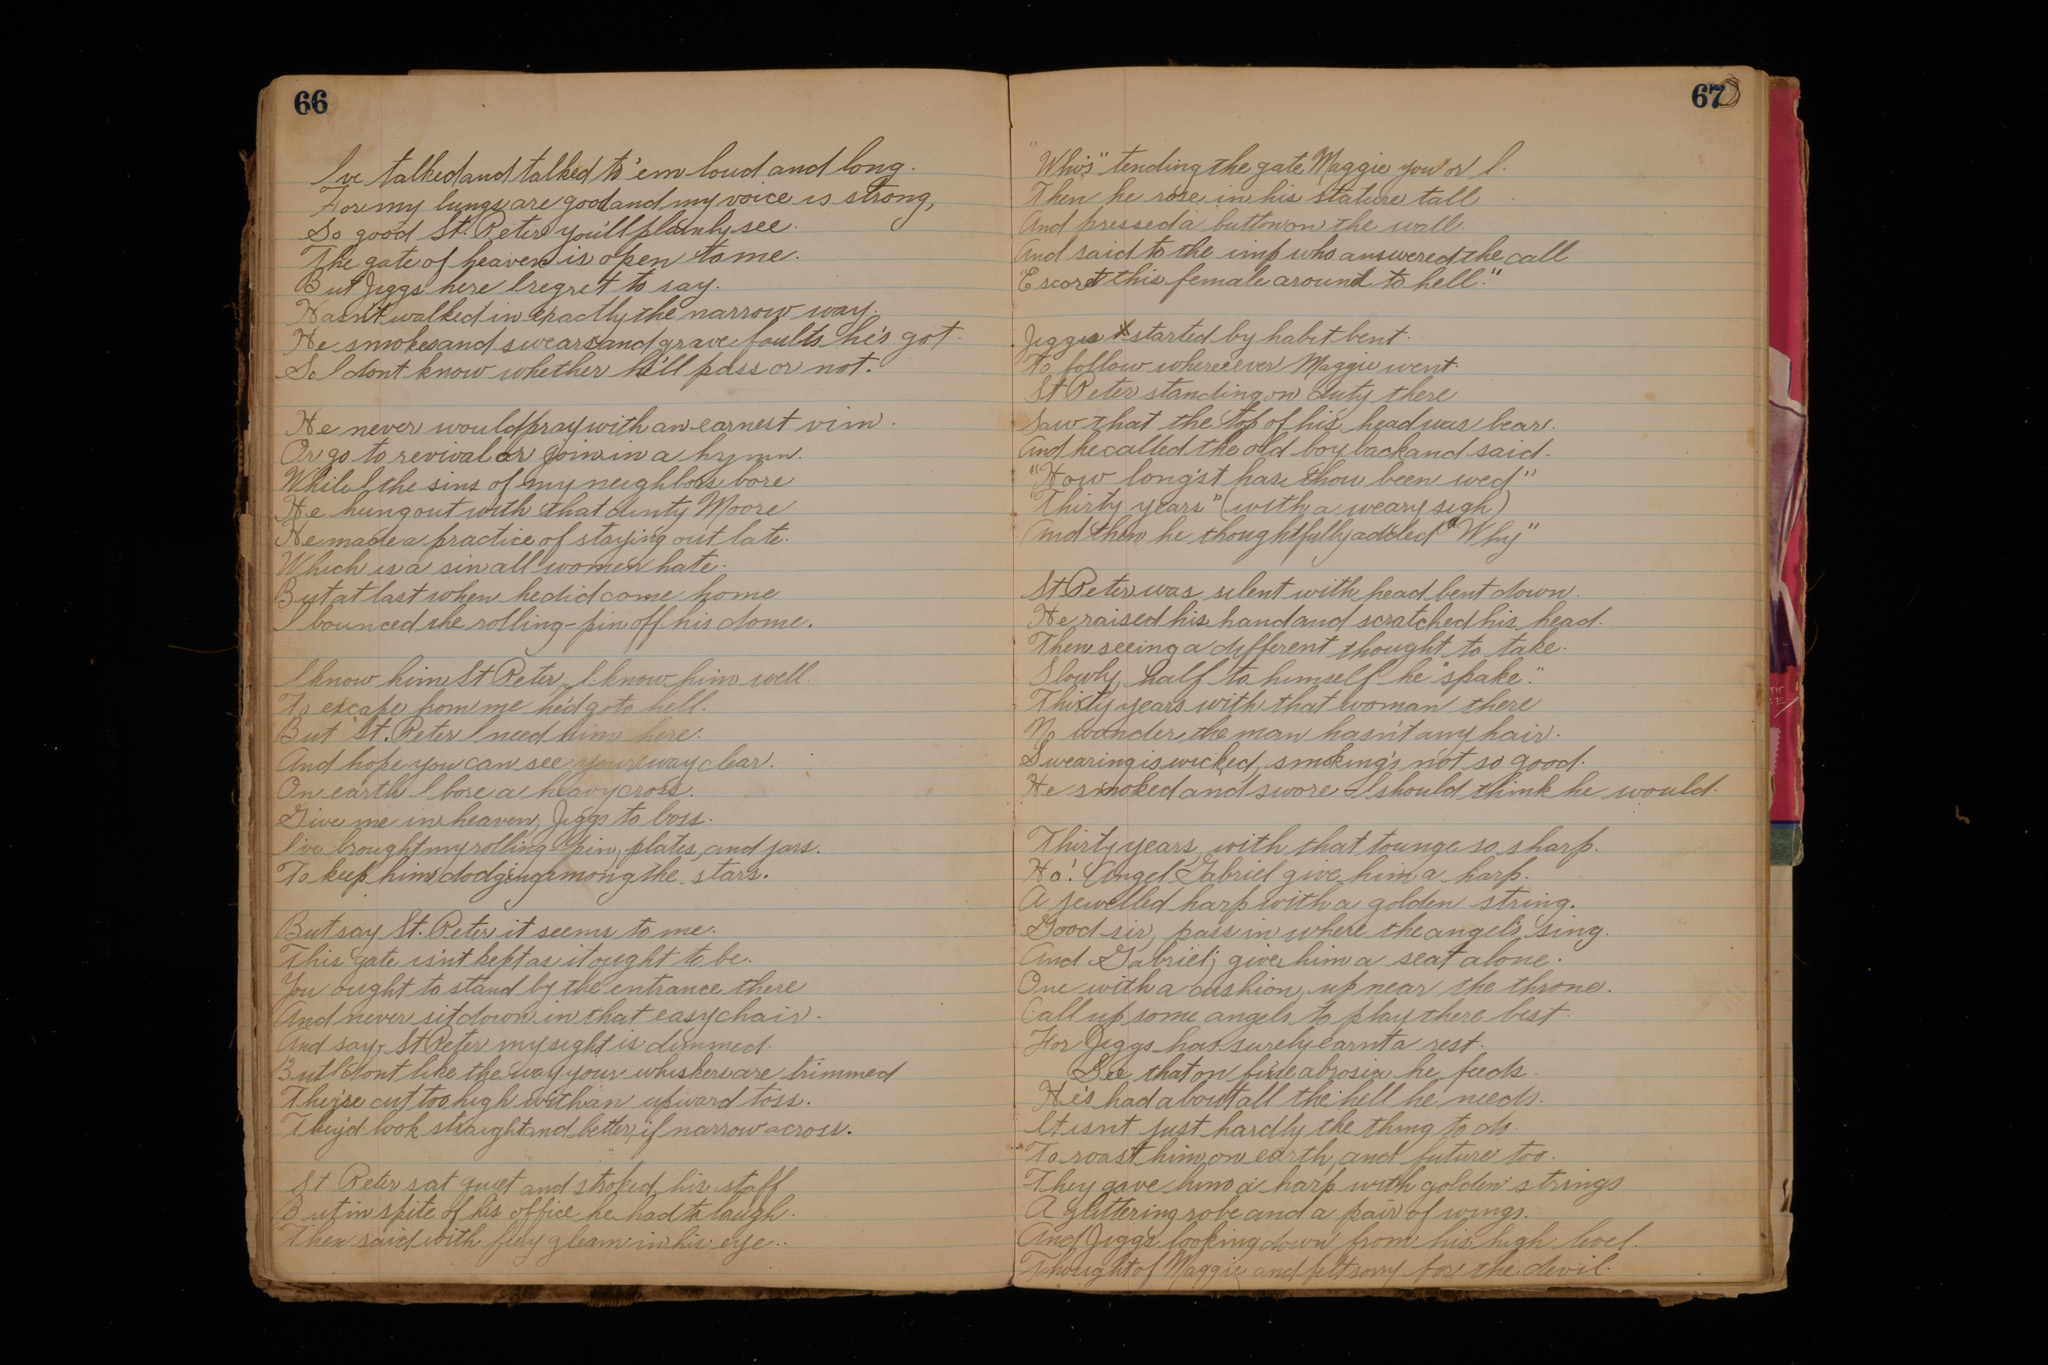 66
I've talked and talked to 'em loud and long.
For my lungs are good and my voice is strong,
So good St. Peter you'll plainly see.
The gate of heaven is open to me.
But Jiggs here I regret to say.
Hasn't walked in exactly the narrow way.
He smokes and swears and grave faults he's got.
So I dont know whether he'll pass or not.
He never would pray with an earnest vim.
Or go to revival or join in a hymn.
While I the sins of my neighbors bore
He hung out with that dinty Moore
He made a practice of staying out late.
Which is a sin all women hate.
But at last when he did come home
I bounced the rolling-pin off his dome.
I know him St Peter, I know him well.
To escape from me he'd go to hell.
But St. Peter I need him here.
And hope you can see your way clear.
On earth I bore a heavy cross.
Give me in heaven, Jiggs to boss.
I've brought my rolling-pin, plates, and jars.
To keep him dodging among the stars.
But say St. Peter it seems to me.
This gate isn't kept as it ought to be.
You ought to stand by the entrance there
And never sit down in that easy chair.
And say, St Peter my sight is dimmed.
But I dont like the way your whiskers are trimmed
They're cut too high with an upward toss.
They'd look straight and better, if narrow across.
St Peter sat quiet and stroked his staff
But in spite of his office he had to laugh.
Then said with fiery gleam in his eye..
67
"Who's" tending the gate Maggie you or I.
Then he rose in his stature tall
And pressed a button on the wall.
And said to the imp who answered the call
"Escort this female around to hell."
Jiggs started by habit bent.
To follow whereever Maggie went.
St Peter standing on duty there
Saw that the top of his head was bear.
And he called the old boy back and said.
"How long'st has thou been wed"
"Thirty years" (with a weary sigh)
And then he thoughtfully added "Why"
St Peter was silent with head bent down.
He raised his hand and scratched his head.
Then seeing a different thought to take.
Slowly, half to himself he "spake."
Thirty years with that woman there
No wonder the man hasn't any hair.
Swearing is wicked, smoking's not so good.
He smoked and swore - I should think he would.
Thirty years, with that tounge so sharp.
Ho! Angel Gabriel give him a harp.
A jewelled harp with a golden string.
Good sir, pass in where the angels sing.
And Gabriel, give him a seat alone.
One with a cushion, up near the throne.
Call up some angels to play there best.
For Jiggs has surely earnt a rest.
See that on fine abrosia he feeds.
He's had about all the hell he needs.
It isnt just hardly the thing to do.
To roast him on earth, and future too.
They gave him a harp with golden strings
A glittering robe and a pair of wings.
And Jiggs looking down from his high level.
Thought of Maggie and felt sorry for the devil.